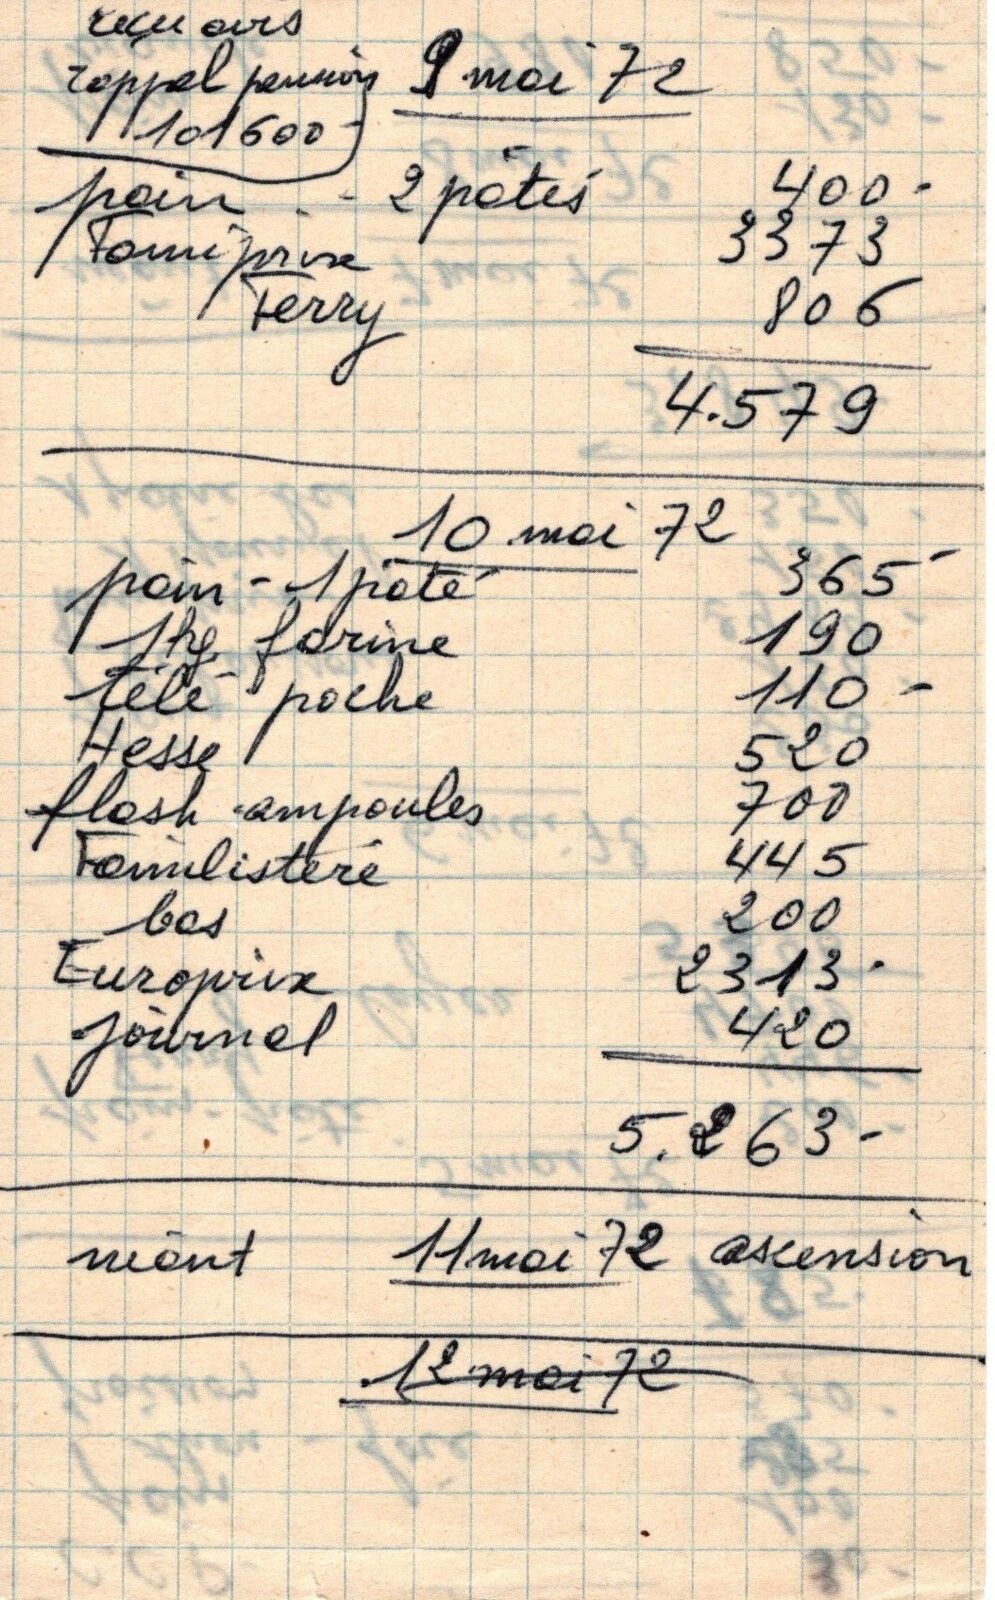 reçu avis
rappel pension
101600-
9 mai 72
pain - 2 pâtés 400-
Famiprix 3373
Ferry 806
4.579
10 mai 72
pain - 1 pâté 365-
1kg farine 190
télé poche 110-
Hesse 520
flash-ampoules 700
Familistère 445
bas 200
Europrix 2313-
journal 420
5.263-
néant 11 mai 72 ascension
12 mai 72